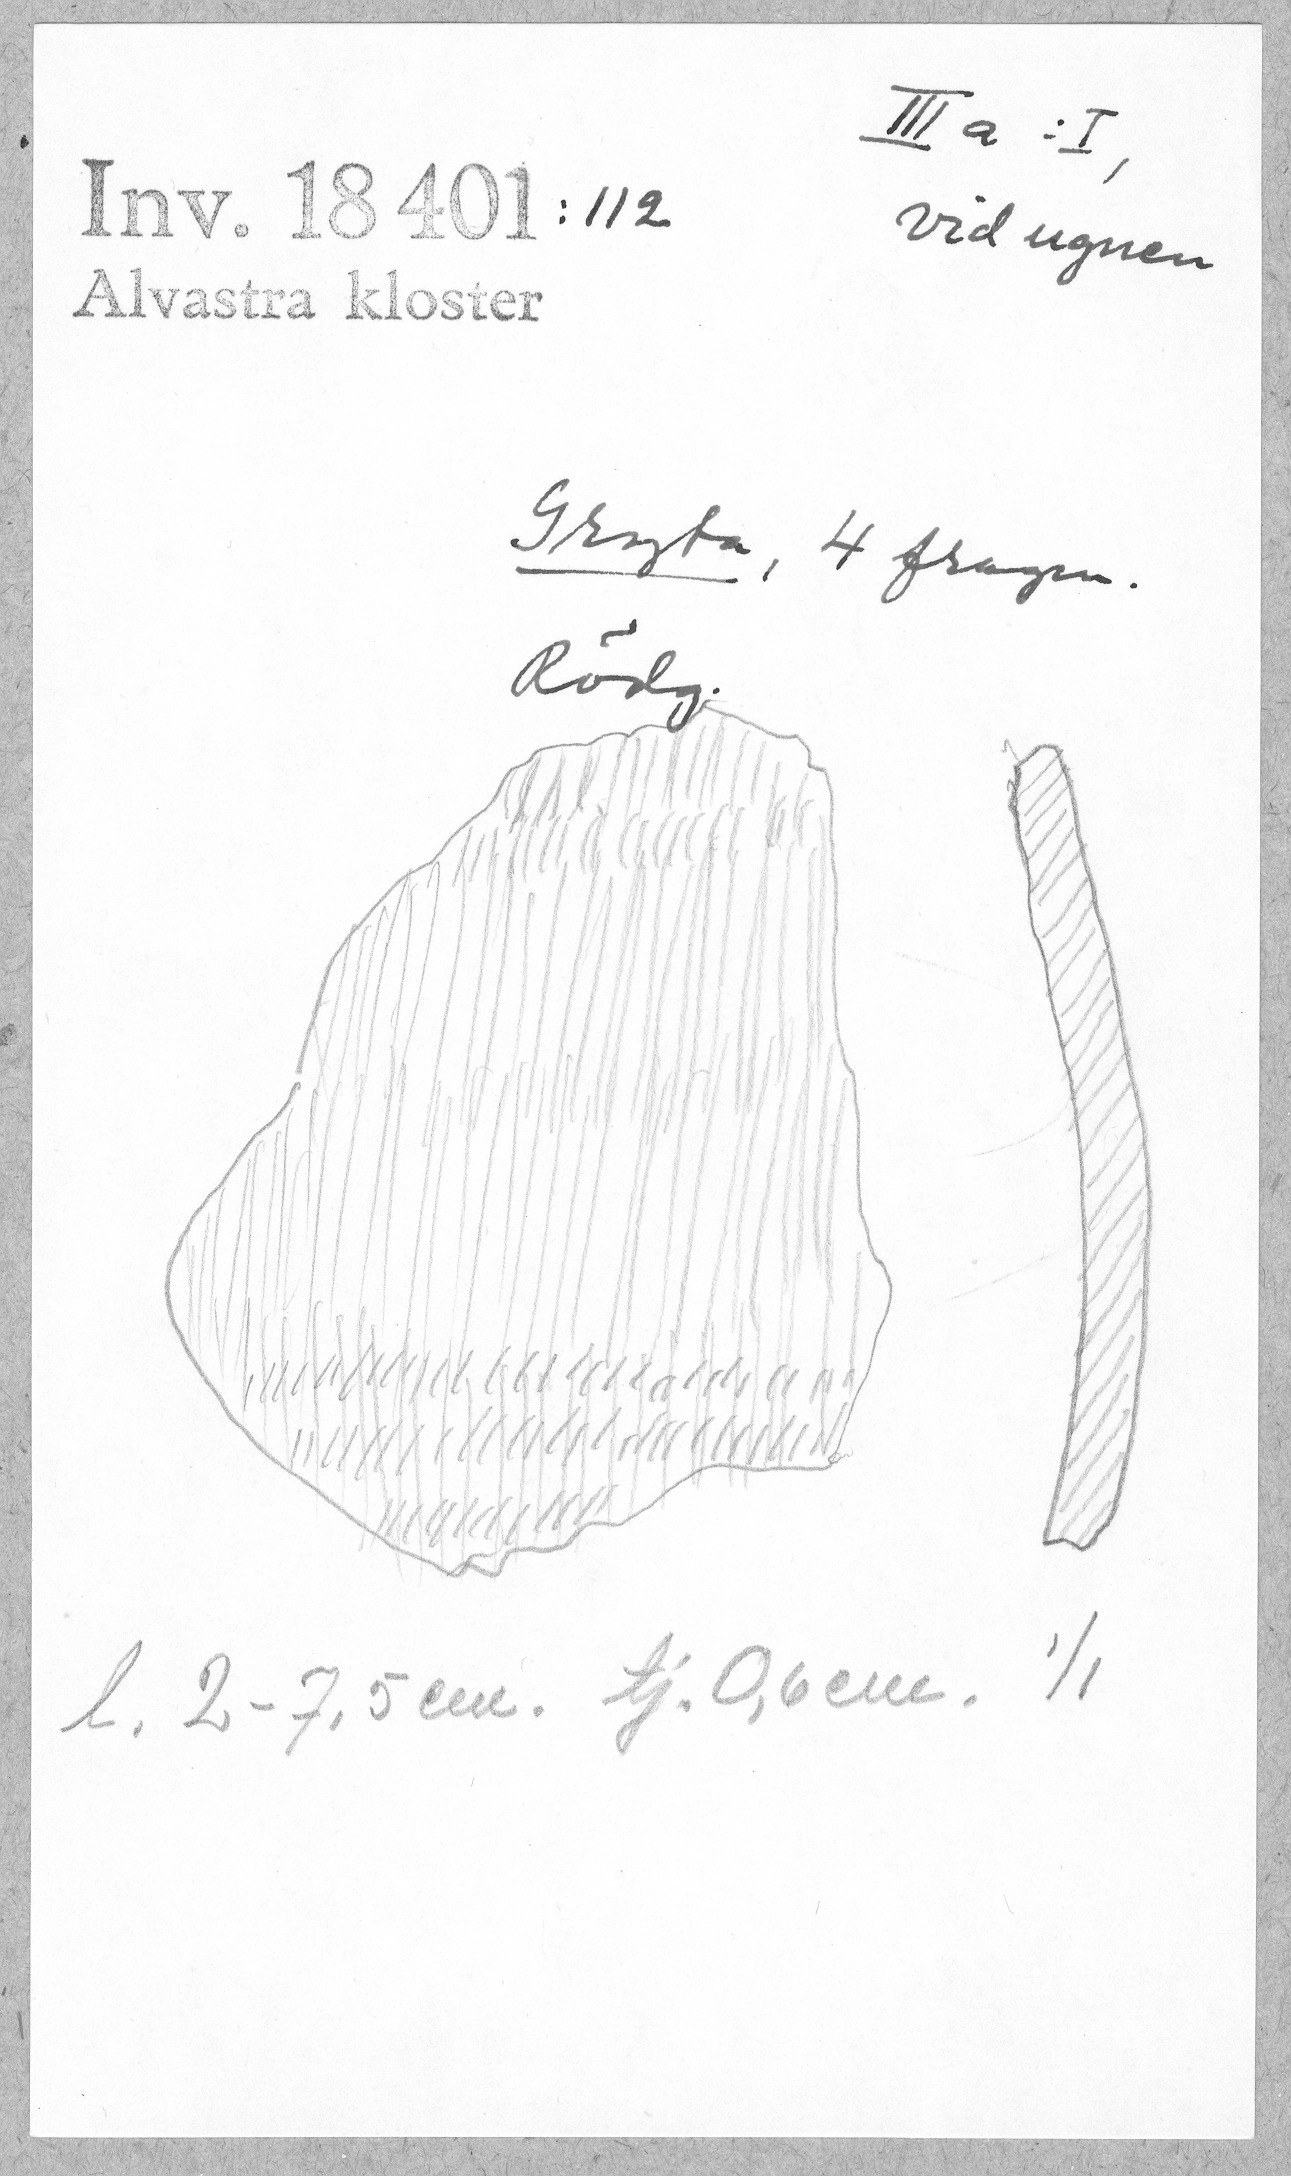 III a :I,
vid ugnen
Inv. 18 401 :112
Alvastra kloster
Gryta, 4 fragm.
Rödg.
l. 2-7,5 cm. tj. 0,6 cm. 1/1